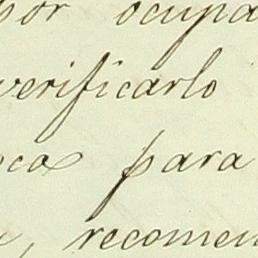 por ocupa
verificarlo
oca para
, recomen